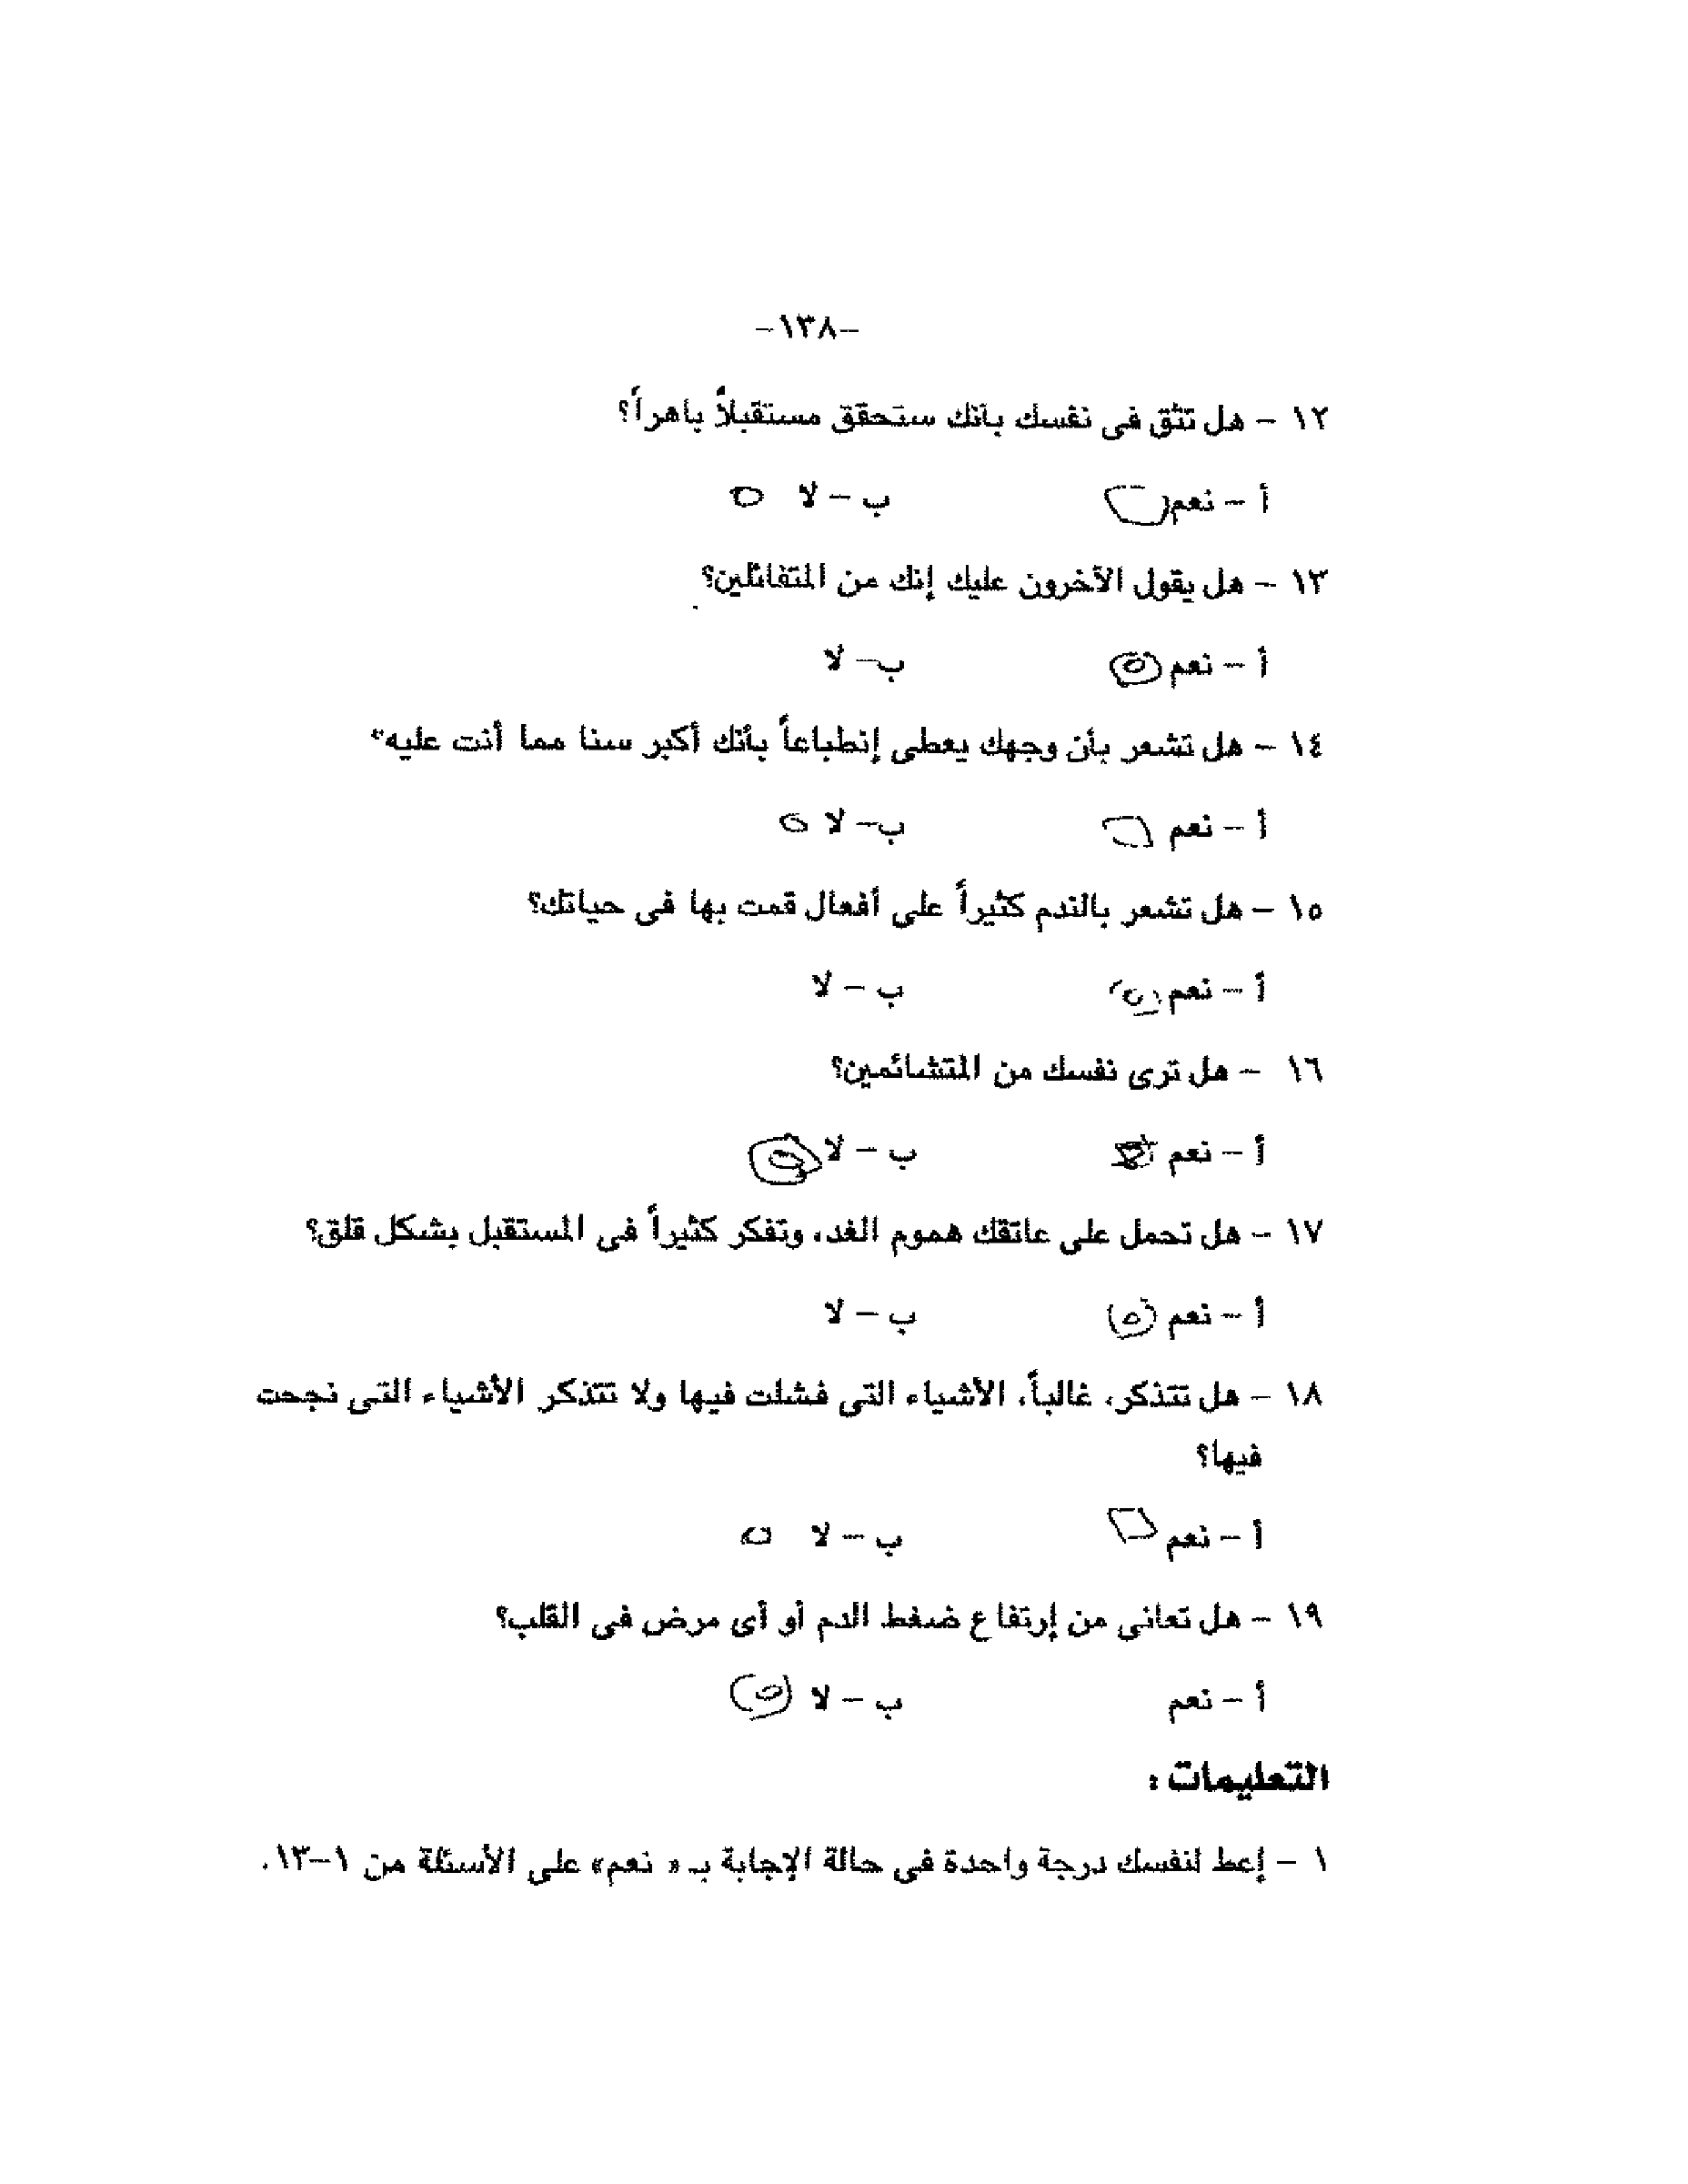 -١٣٨-
١٢ - هل تثق فى نفسك بأنك ستحقق مستقبلاً باهراً؟
أ - نعم ب - لا
١٣ - هل يقول الآخرون عليك إنك من المتفائلين؟
أ - نعم ب - لا
١٤ - هل تشعر بأن وجهك يعطى إنطباعاً بأنك أكبر سنا مما أنت عليه؟
أ - نعم ب - لا
١٥ - هل تشعر بالندم كثيراً على أفعال قمت بها فى حياتك؟
أ - نعم ب - لا
١٦ - هل ترى نفسك من المتشائمين؟
أ - نعم ب - لا
١٧ - هل تحمل على عاتقك هموم الغد، وتفكر كثيراً فى المستقبل بشكل قلق؟
أ - نعم ب - لا
١٨ - هل تتذكر، غالباً، الأشياء التى فشلت فيها ولا تتذكر الأشياء التى نجحت
فيها؟
أ - نعم ب - لا
١٩ - هل تعانى من إرتفاع ضغط الدم أو أى مرض فى القلب؟
أ - نعم ب - لا
التعليمات :
١ - إعط لنفسك درجة واحدة فى حالة الإجابة بـ « نعم» على الأسئلة من ١-١٣.